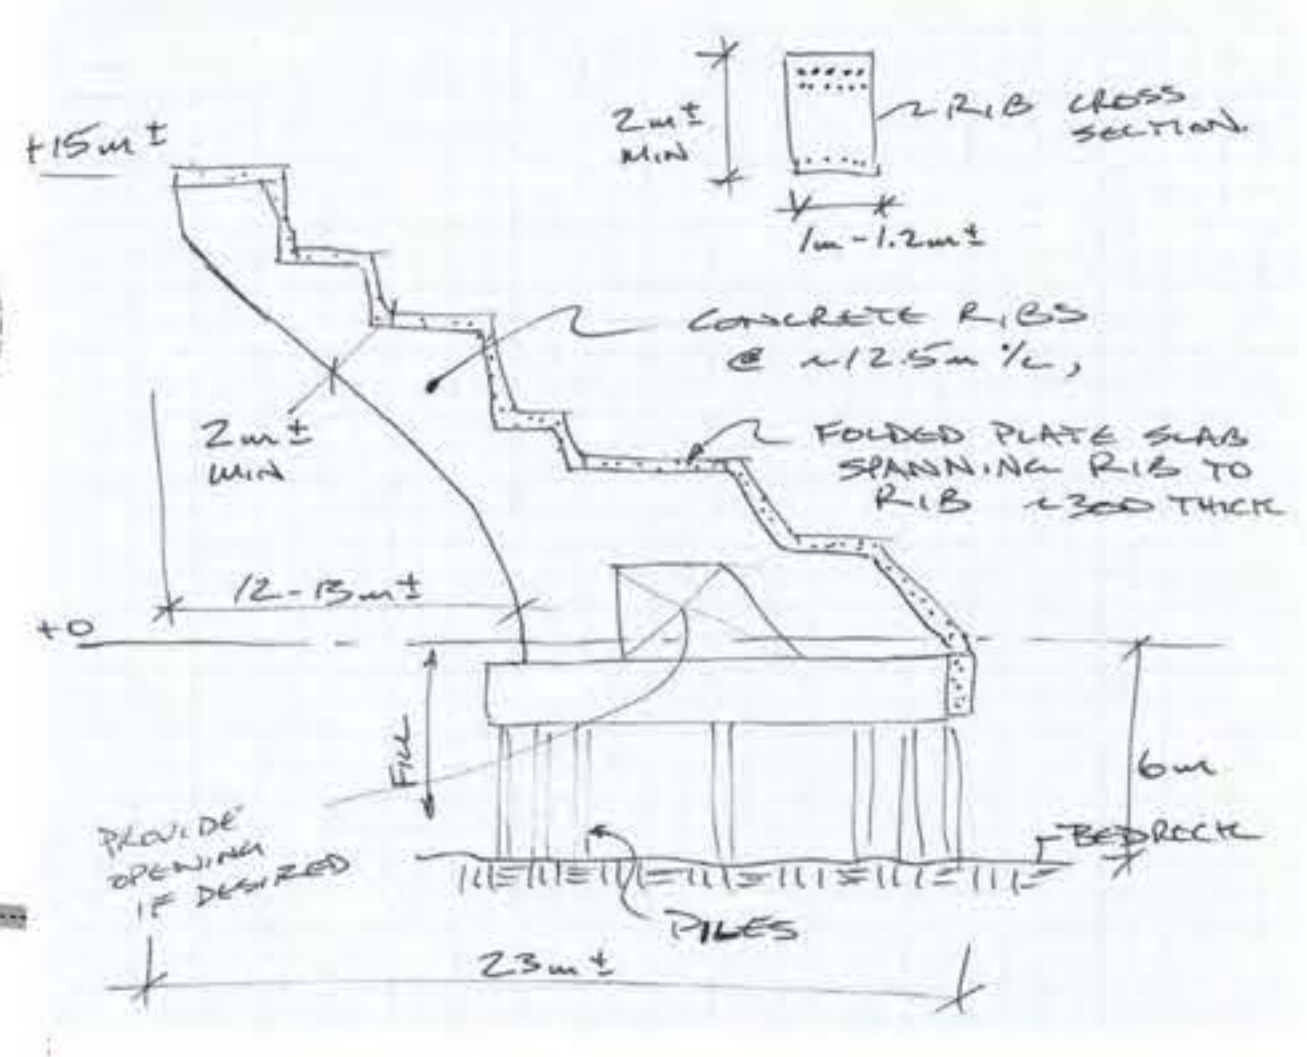 +15m±
2m±
MIN
RIB CROSS
SECTION.
1m-1.2m±
CONCRETE RIBS
@ ~12.5m o/c,
2m±
MIN
FOLDED PLATE SLAB
SPANNING RIB TO
RIB ~300 THICK
12-13m±
+0
FILL
6m
BEDROCK
PROVIDE
OPENING
IF DESIRED
PILES
23m±